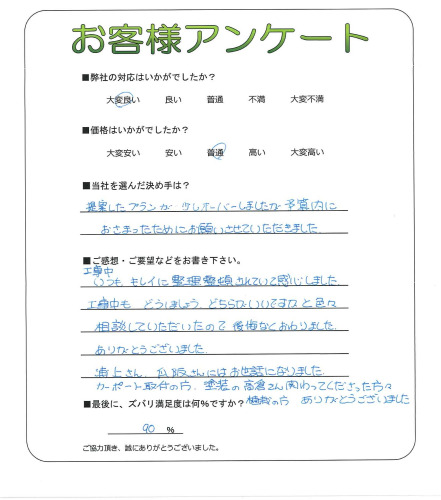 お客様アンケート
■弊社の対応はいかがでしたか?
大変良い 良い 普通 不満 大変不満
■価格はいかがでしたか?
大変安い 安い 普通 高い 大変高い
■当社を選んだ決め手は?
提案したプランが 少しオーバーしましたが 予算内に
おさまったためにお願いさせていただきました
■ご感想・ご要望などをお書き下さい。
工事中
いつも、キレイに整理整頓されていて感じしました。
工事中も どうしましょう、どちらがいいですかなと色々
相談していただいたので 後悔なくおわりました。
ありがとうございました。
浦上さん、 さんにはお世話になりました。
カーポート取付の方、塗装の高倉さん関わってくださった方々
■最後に、ズバリ満足度は何%ですか? の方 ありがとうございました
90 %
ご協力頂き、誠にありがとうございました。